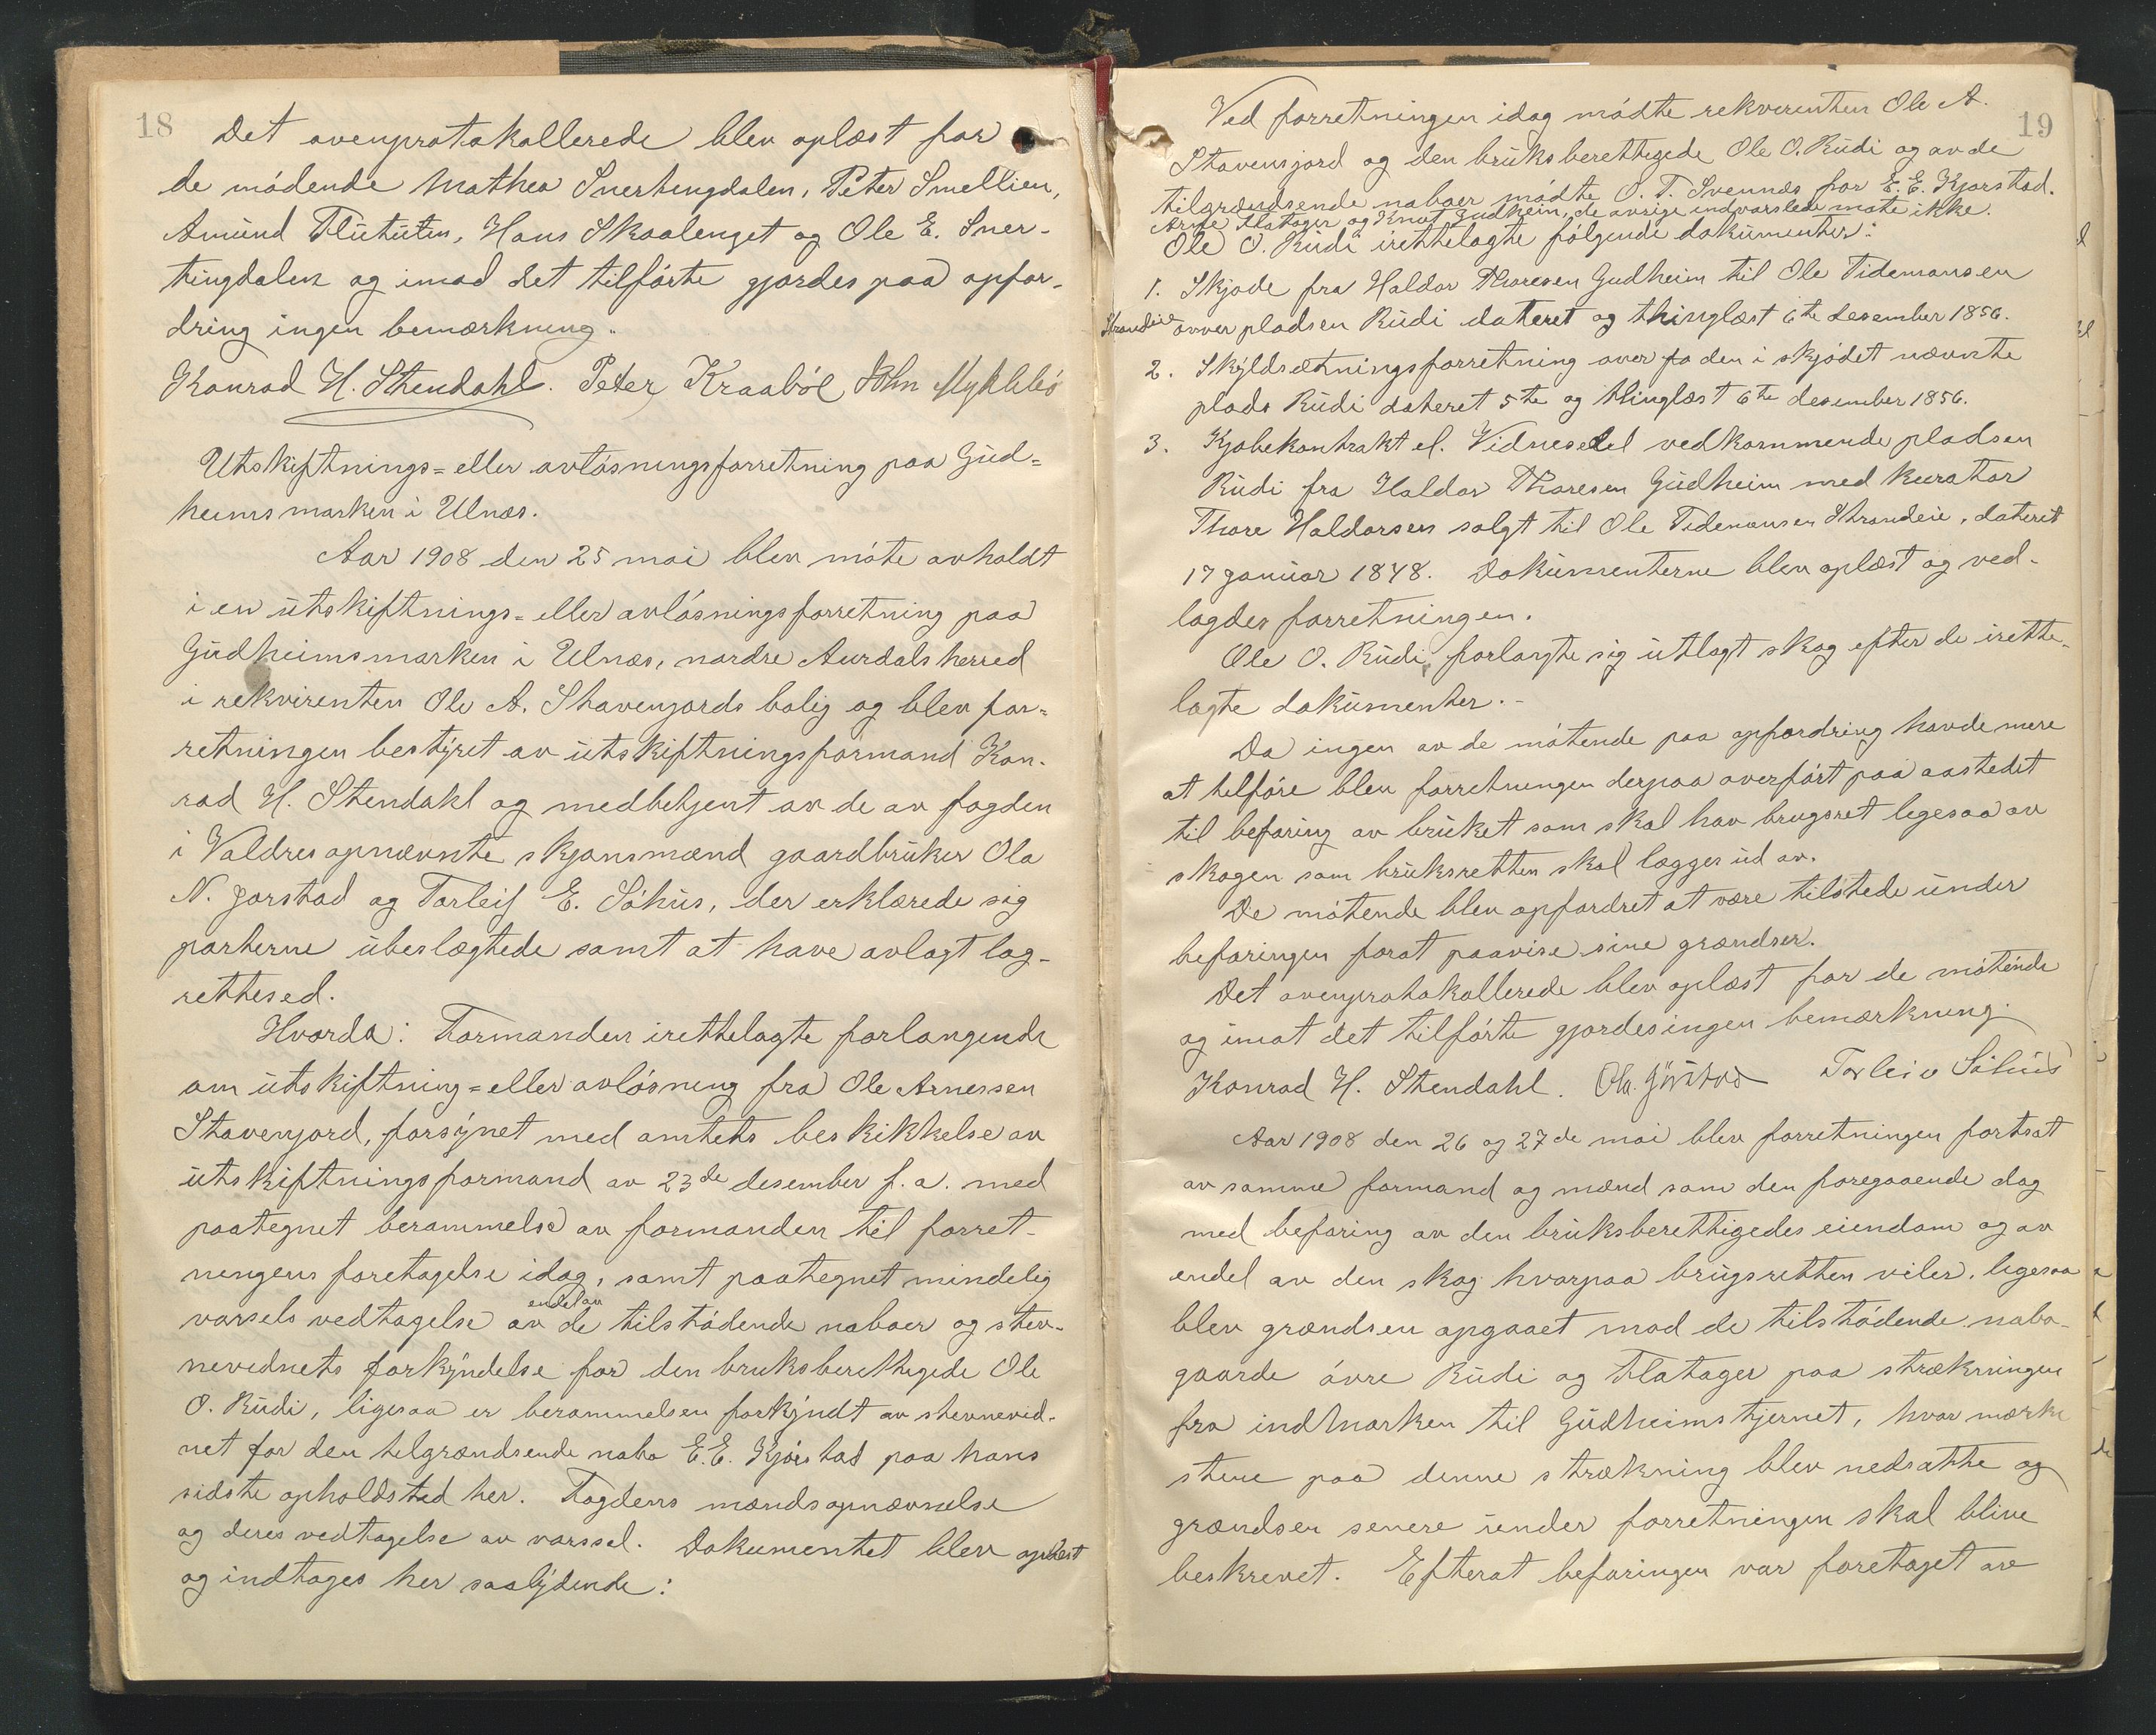 18
Det ovenprotokollerede blev oplæst for
de mødende Mathea Snertengdalen, Peter Smellien,
Amund Flututen, Hans Skaalenget og Ole E. Sner-
tingdalen og imod det tilførte gjordes paa opfor-
dring ingen bemærkning.
Konrad H. Stendahl. Peter Kraabøl John Myklebø
Utskiftnings= eller avløsningsforretning paa Gud=
heimsmarken i Ulnæs.
Aar 1908 den 25 mai blev møte avholdt
i en utskiftnings= eller avløsningsforretning paa
Gudheimsmarken i Ulnæs, nordre Aurdals herred
i rekvirenten Ole A. Stavenjords bolig og blev for=
retningen bestyret av utskiftningsformand Kon-
rad H. Stendahl og medbetjent av de av fogden
i Valdres opnævnte skjønsmænd gaardbruker Ola
N. Jorstad og Torleif E. Søhus, der erklærede sig
parterne ubeslægtede samt at have avlagt lag-
rettesed.
Hvorda: Formanden irettelagte forlangende
om utskiftning= eller avløsning fra Ole Arnessen
Stavenjord, forsynet med amtets beskikkelse av
utskiftningsformand av 23de desember f.a. med
paategnet berammelse av formanden til forret-
nengens foretagelse idag, samt paategnet mindelig
varsels vedtagelse av endel av de tilstødende naboer og stev-
nevidnets forkyndelse for den bruksberettigede Ole
O. Rudi, ligesaa er berammelsen forkyndt av stevnevid-
net for den tilgrændsende nabo E.E. Kjørstad paa hans
sidste opholdsted her. Fogdens mændsopnævnelse
og deres vedtagelse av varssel. Dokumentet blev oplæst
og indtages her saalydende:
19
Ved forretningen idag mødte rekvirenten Ole A.
Stavensjord og den bruksberettigede Ole O. Rudi og av de
tilgrændsende naboer mødte O. T. Svennæs for E.E. Kjorstad.
Arne Flatager og Knut Gudheim, de øvrige indvarslede møte ikke.
Ole O. Rudi irettelagte følgende dokumenter:
1. Skjøde fra Haldor Thoresen Gudheim til Ole Tidemansen
Strandeie over pladsen Rudi dateret og thinglæst 6te desember 1856.
2. Skyldsætningsforretning over fo den i skjødet nævnte
plads Rudi dateret 5te og thinglæst 6te desember 1856.
3. Kjøbekontrakt el. Vidnesedel vedkommende pladsen
Rudi fra Haldor Thoresen Gudheim med kurator
Thore Haldorsen solgt til Ole Tidemansen Strandeie, dateret
17 januar 1848. Dokumenterne blev oplæst og ved-
lagdes forretningen.
Ole O. Rudi forlangte sig utlagt skog efter de irette-
lagte dokumenter.-
Da ingen av de møtende paa opfordring havde mere
at tilføre blev forretningen derpaa overført paa aastedet
til befaring av bruket som skal hav brugsret legesaa av
skogen som bruksretten skal lægges ud av.
De møtende blev opfordret at være tilstede under
befaringen forat paavise sine grændser.
Det ovenprotokollerede blev oplæst for de møtende
og imot det tilførte gjordes ingen bemærkning
Konrad H. Stendahl. Ola Jørstad Torleiv Søhus
Aar 1908 den 26 og 27de mai blev forretningen fortsat
av samme formand og mænd som den foregaaende dag
med befaring av den bruksberettigedes eiendom og av
endel av den skog hvorpaa brugsretten viler. ligesaa
blev grændsen opgaaet mod de tilstødende nabo-
gaarde øvre Rudi og Flatager paa strækningen
fra indmarken til Gudheimstjernet, hvor mærke
stene paa denne strækning blev nedsatte og
grændsen senere under forretningen skal blive
beskrevet. Efterat befaringen var foretaget av